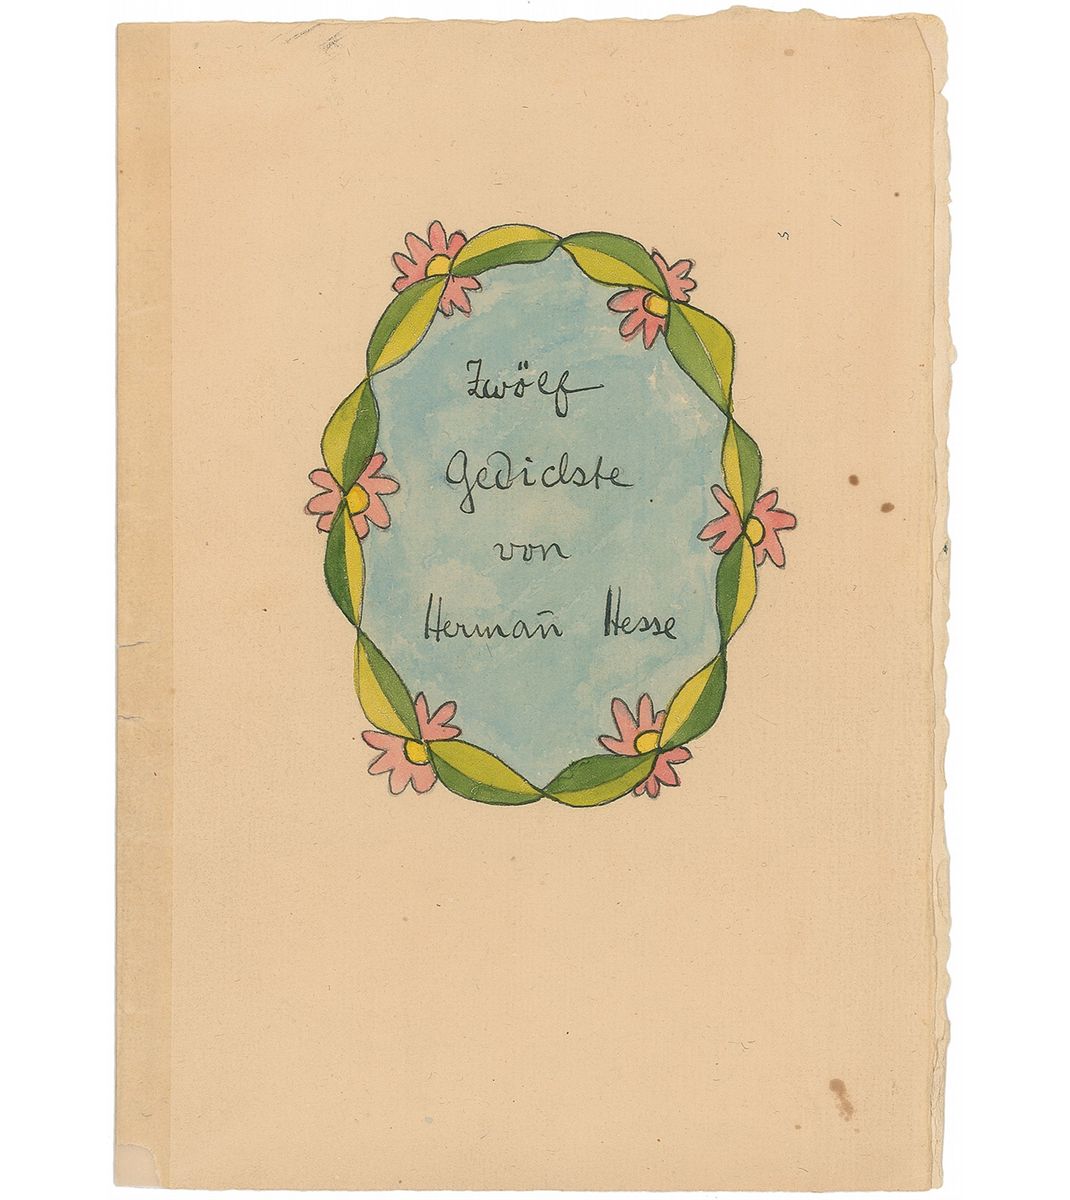 Zwölf
Gedichte
von
Hermañ Hesse